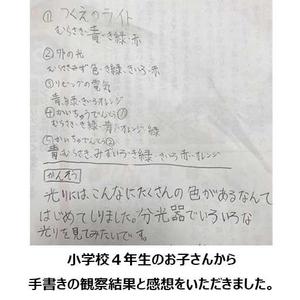 ① つくえのライト
むらさき・青・き緑・赤
② 外の光
むらさき・みず色・き緑・きいろ・赤
③ リビングの電気
青・緑・きいろ・オレンジ
④ かいちゅうでんとう①
むらさき・き緑・青・オレンジ・緑
⑤ かいちゅうでんとう②
青・むらさき・みずいろ・き緑・きいろ・赤・オレンジ
かんそう
光りにはこんなにたくさんの色があるなんて
はじめてしりました。分光器でいろいろな
光りを見てみたいです。
小学校４年生のお子さんから
手書きの観察結果と感想をいただきました。